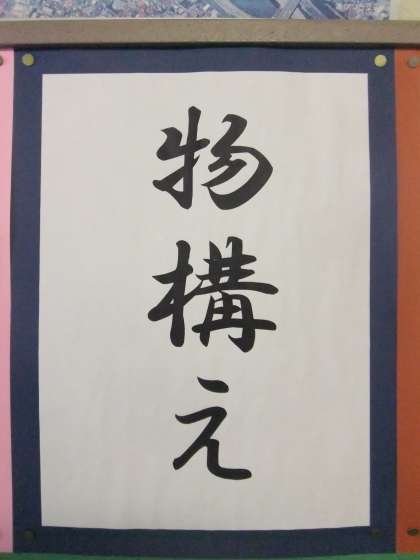 物構え